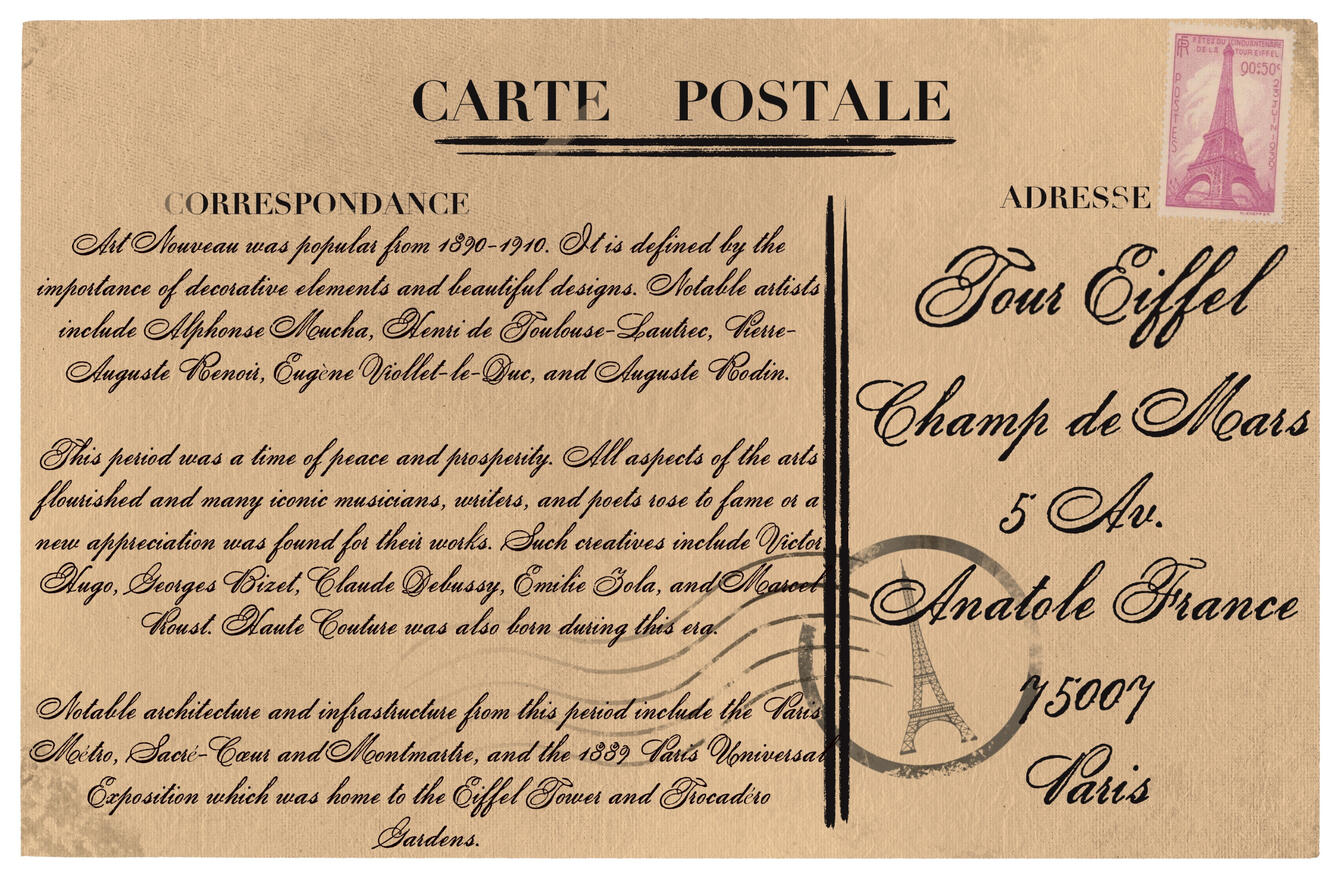 CARTE POSTALE
CORRESPONDANCE
Art Nouveau was popular from 1890-1910. It is defined by the
importance of decorative elements and beautiful designs. Notable artists
include Alphonse Mucha, Henri de Toulouse-Lautrec, Pierre-
Auguste Renoir, Eugène Viollet-le-Duc, and Auguste Rodin.
This period was a time of peace and prosperity. All aspects of the arts
flourished and many iconic musicians, writers, and poets rose to fame or a
new appreciation was found for their works. Such creatives include Victor
Hugo, Georges Bizet, Claude Debussy, Emilie Zola, and Marcel
Proust. Haute Couture was also born during this era.
Notable architecture and infrastructure from this period include the Paris
Métro, Sacré-Cœur and Montmartre, and the 1889 Paris Universal
Exposition which was home to the Eiffel Tower and Trocadéro
Gardens.
ADRESSE
Tour Eiffel
Champ de Mars
5 Av.
Anatole France
75007
Paris
RF
FÊTES DU CINQUANTENAIRE
DE LA TOUR EIFFEL
90c+50c
POSTES